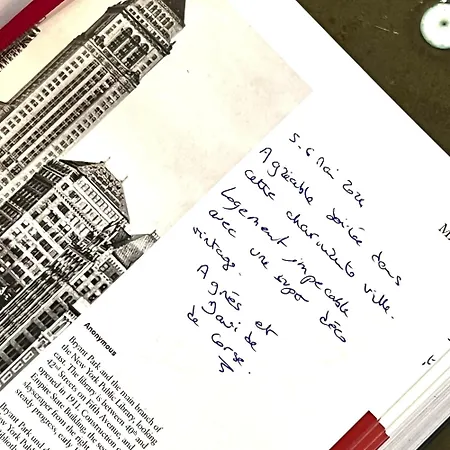 5-6 Mai 2024
Agréable soirée dans
cette charmante ville.
Logement impeccable
avec une super déco
vintage.
Agnès et
de Corse.
M
Anonymous
Bryant Park and the main branch of
the New York Public Library, looking
east. The library is between 40th and
42nd Streets on Fifth Avenue, and
opened in 1911. Construction of
Empire State Building, the
skyscraper from the right
steady progress, early
Bryant Park und
New York Pub